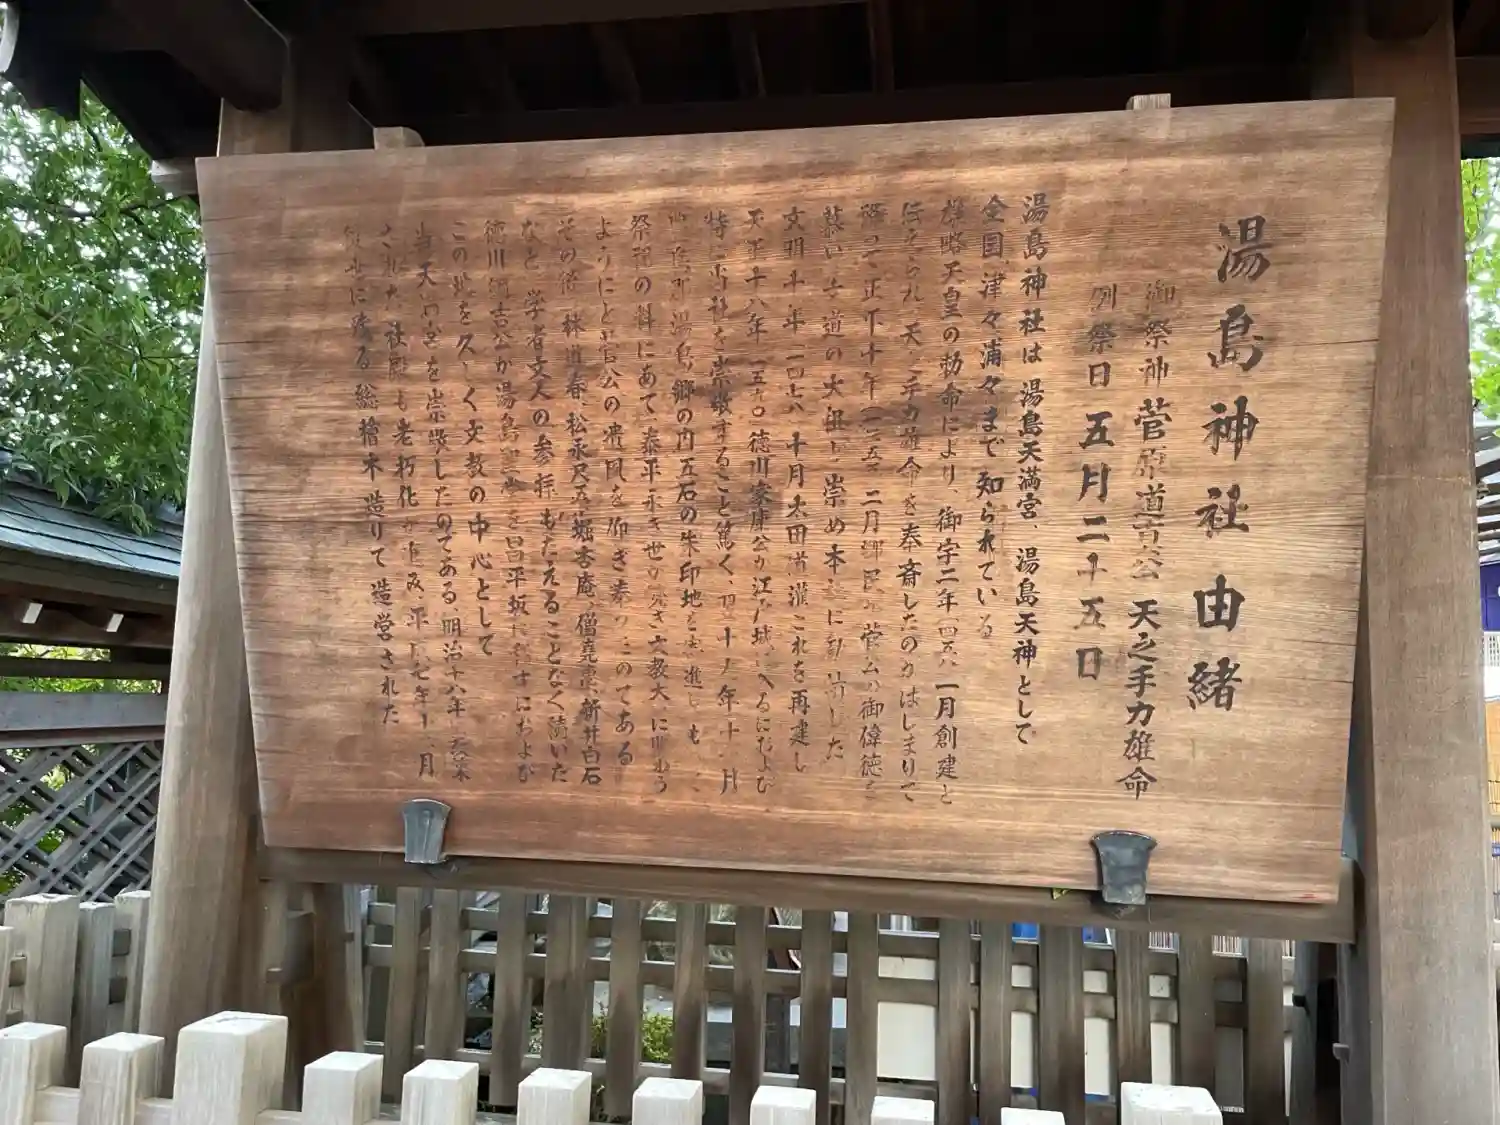 湯島神社由緒
御祭神 菅原道真公 天之手力雄命
例祭日 五月二十五日
湯島神社は 湯島天満宮、湯島天神として
全国津々浦々まで知られている
雄略天皇の勅命により、御宇二年(四五八)一月創建と
伝えられ、天之手力雄命を奉斎したのがはじまりで
降って正平十年(一三五五)二月郷民が菅公の御偉徳を
慕い 文道の大祖と崇め本社に勧請した
文明十年(一四七八)十月太田道灌これを再建し
天正十八年(一五九〇)徳川家康公が江戸城に入るにおよび
特に当社を崇敬すること篤く、翌十九年十一月
豊島郡湯島郷の内五石の朱印地を寄進し も
祭祀の料にあて 泰平永き世が続き 文教大いに賑わう
ようにと菅公の遺風を仰ぎ奉ったのである
その後 林道春、松永尺五、堀杏庵、僧堯恵、新井白石
など 学者文人の参拝もたえることなく続いた
徳川綱吉公が湯島聖堂を昌平坂に移すにおよび
この地を久しく文教の中心として
当天満宮を崇拝したのである 明治十八年 改築
された社殿も老朽化が進み 平成七年十二月
総檜木造りで造営された